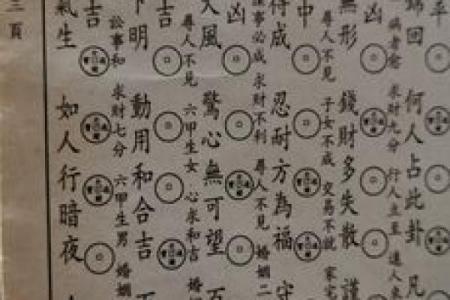 平
回 何人占此卦 凡
病者愈 求財九分 行人立至 遠人來
凶
無形 錢財多失散 謹
尋人不見 子女不成 交易不就 家宅
中
得成 忍耐方為福 守
謀事必成 求財不利 尋人不見 婚姻二
凶
大風 驚心無可望 百
尋人不見 六甲生女 心求和吉 婚姻
吉
下明 動用和合吉
訟事和 求財七分 六甲生男 婚姻
吉
氣生 如人行暗夜
三頁